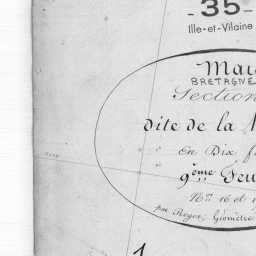 - 35 -
Ille-et-Vilaine
BRETAGNE
Section
dite de la
En Dix
9ème Feu
Nos 16 et
par Roger, Géomètre
1